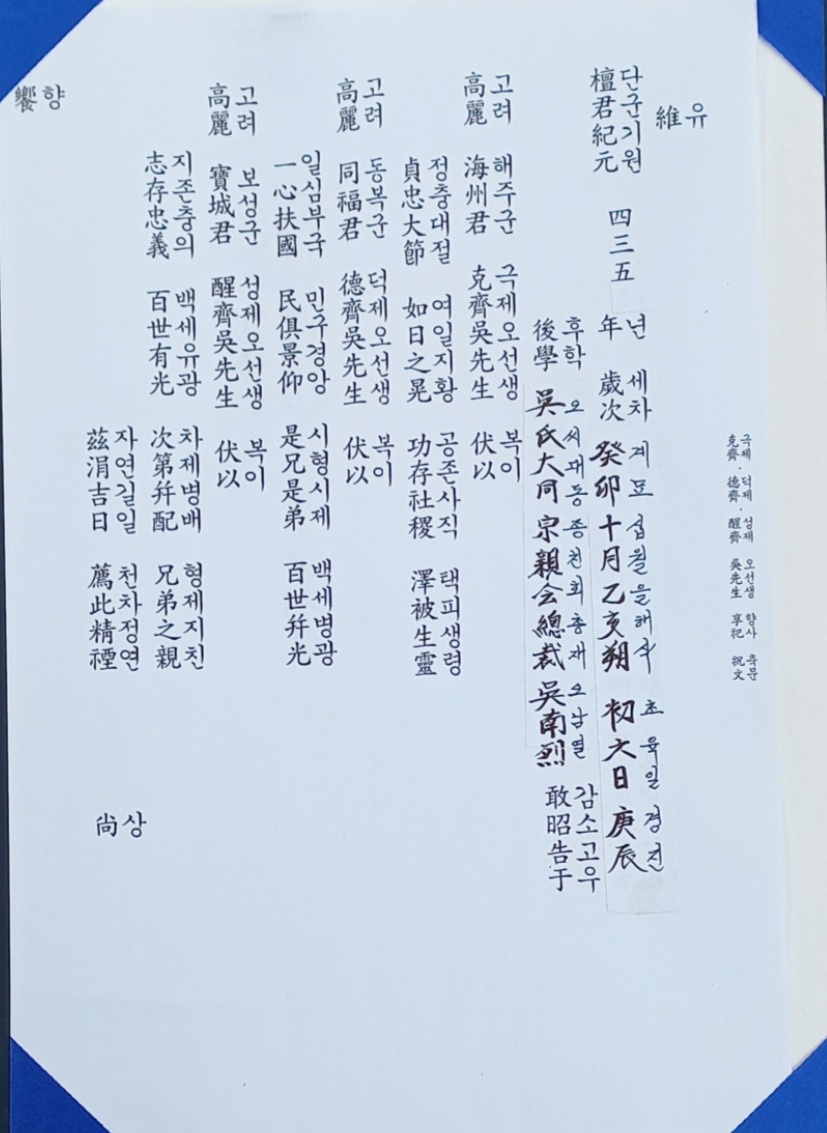 극제 · 덕제 · 성제 오선생 향사 축문
克齊 · 德齊 · 醒齊 吳先生 享祀 祝文
유
維
단군기원 년 세차 계묘 십월 을해삭 초육일 경진
檀君紀元 四三五 年 歲次 癸卯 十月 乙亥朔 初六日 庚辰
후학 오씨대동종친회총재 오남열 감소고우
後學 吳氏大同宗親会總裁 吳南烈 敢昭告于
고려 해주군 극제오선생 복이
高麗 海州君 克齊吳先生 伏以
정충대절 여일지황 공존사직 택피생령
貞忠大節 如日之晃 功存社稷 澤被生靈
고려 동복군 덕제오선생 복이
高麗 同福君 德齊吳先生 伏以
일심부국 민구경앙 시형시제 백세병광
一心扶國 民俱景仰 是兄是弟 百世幷光
고려 보성군 성제오선생 복이
高麗 寶城君 醒齊吳先生 伏以
지존충의 백세유광 차제병배 형제지친
志存忠義 百世有光 次第幷配 兄弟之親
자연길일 천차정연 상
玆涓吉日 薦此精禋 尙
향
饗